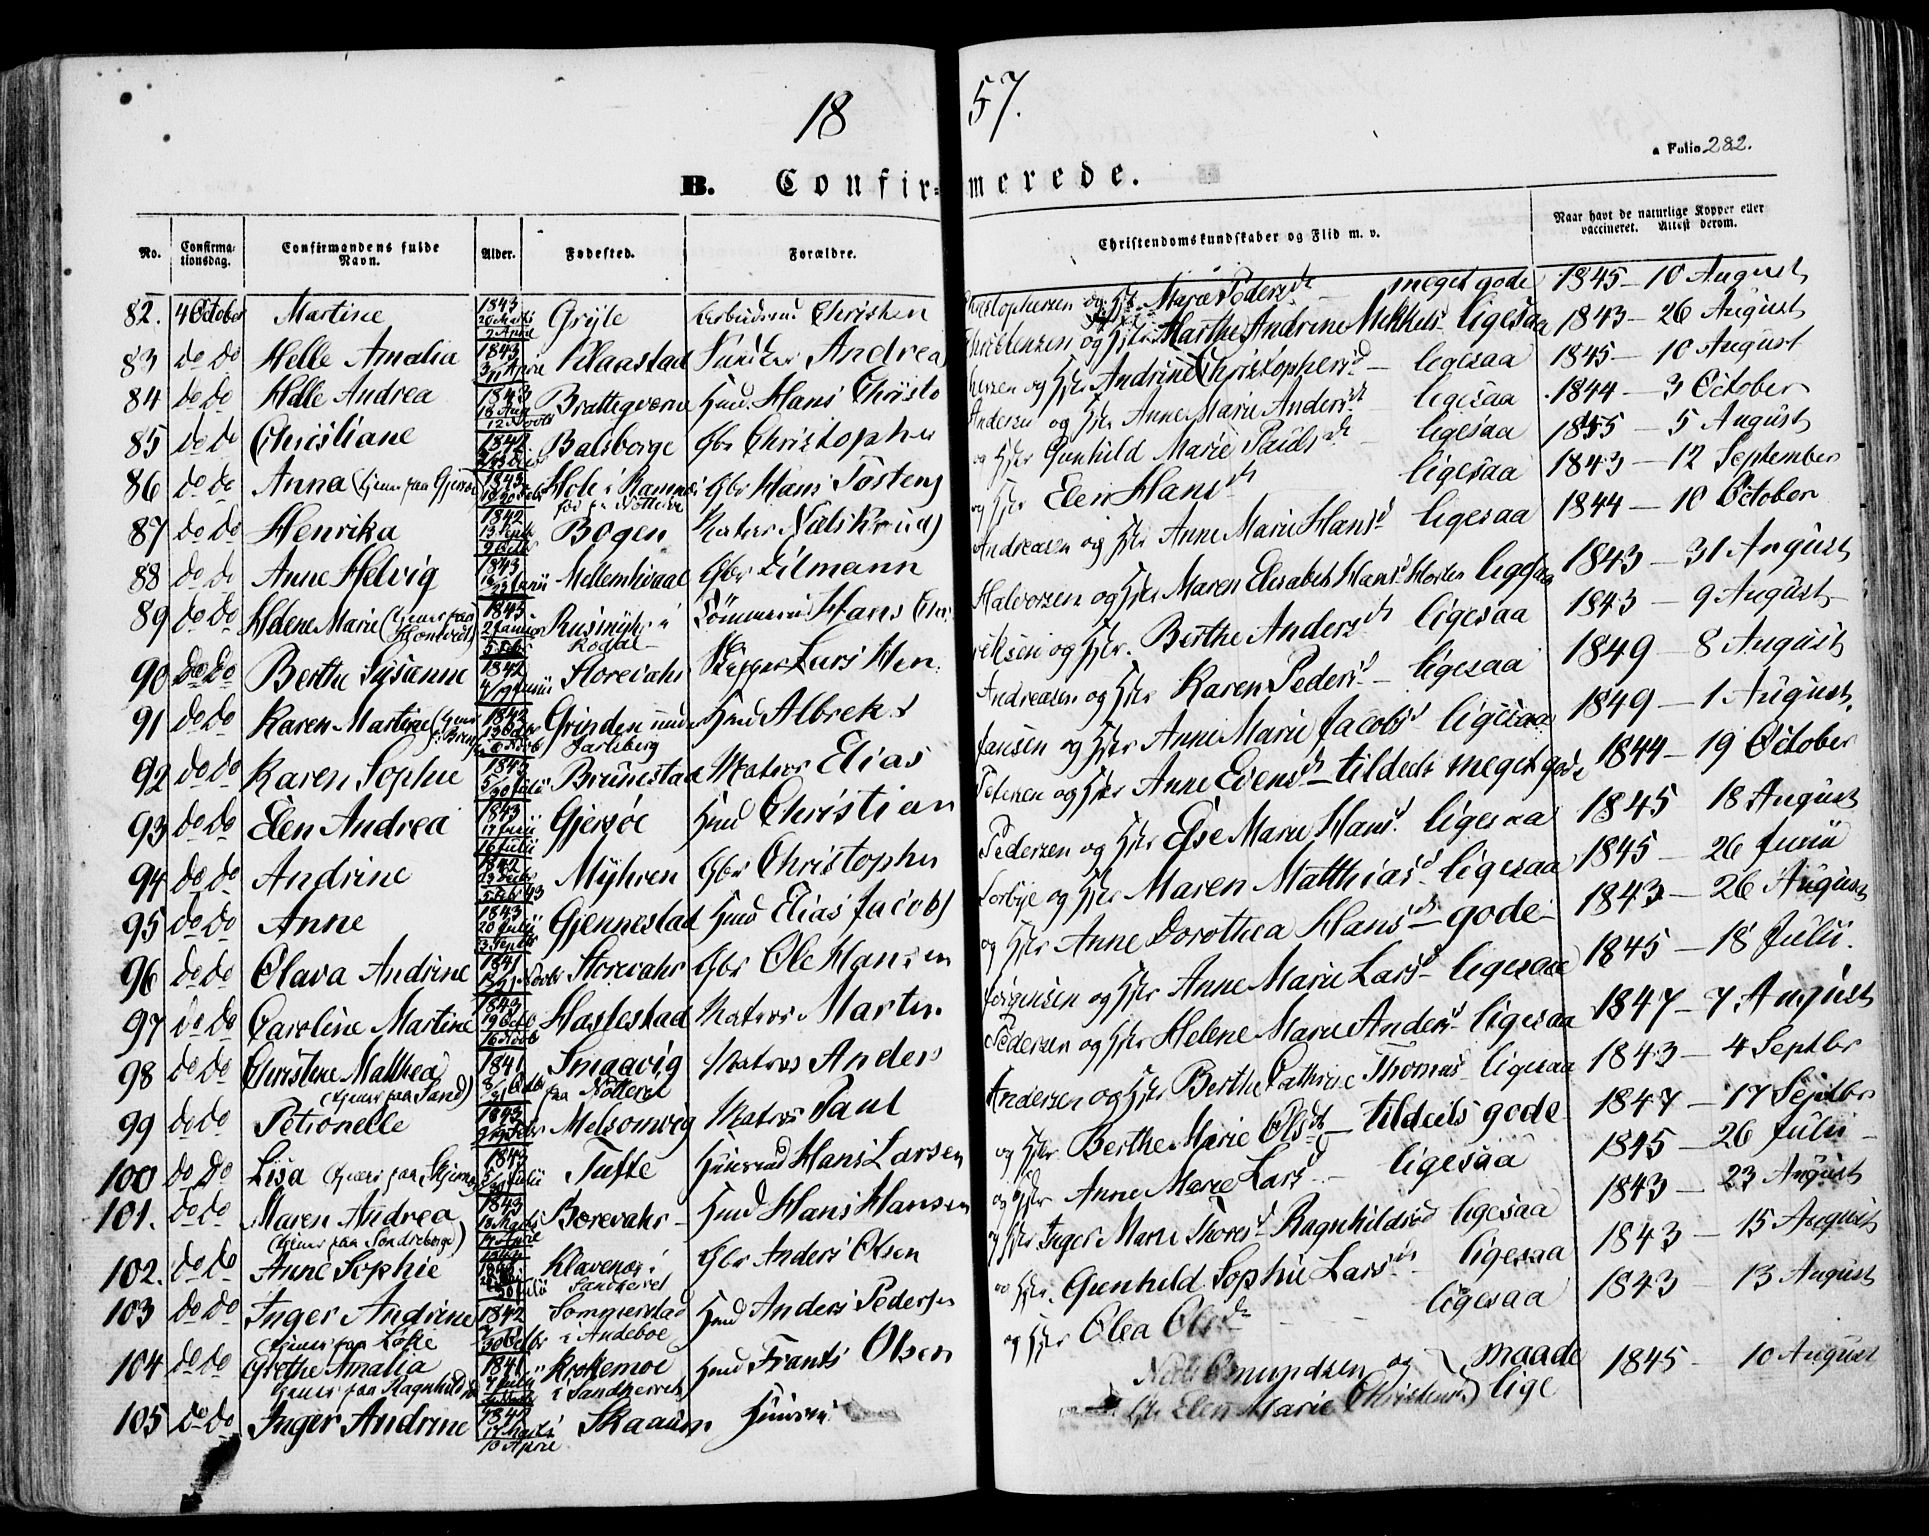 18 57.
a Folio 282.
B. Confir= merede.
No. Confirma-tionsdag. Confirmandens fulde Navn. Alder. Fødested. Forældre. Christendomskundskaber og Flid m. v. Naar havt de naturlige Kopper eller vaccineret. Attest derom.
82. 4 October Martine 1843 Gryte Christen Christophersen og Hstr Maren Peders dt meget gode 1845 – 10 August
83 do do Helle Amalia 1843 Klaastad Andrea og Hstr Marthe Andrine Mikkels ligesaa 1843 – 26 August
84 do do Helle Andrea 1843 12 Novbr Hmd. Hans Christo hersen og Hstr Andrine Christophers d – ligesaa 1845 – 10 August
85 do do Christiane 1842 Basberge Gbr Christopher Andersen og Hstr Anne Marie Anders dt ligesaa 1844 – 3 October
86 do do Anna (tjener paa Gjersøe 1843 Hole i Ramnes Gbr Hans Tostens og Hstr Gunhild Marie Pauls dt – ligesaa 1855 – 5 August
87 do do Henrika 1842 Bogen Matros Nils Knuds og Hstr Elen Hans dt ligesaa 1843 – 12 September
88 do do Anne Helvig 1843 Mellemhvaal Gbr Tilmann Andreasen og Hstr Anne Marie Hans d ligesaa 1844 – 10 October
89 do do Helene Marie (tjener paa 1843 2 Januar 5 Febr i Kodal Hans Halvorsen og Hstr Maren Elisabeth Hans d ligesaa 1843 – 31 August
90 do do Berthe Susanne 1842 Storevahr Skipper Lars Hen riksen og Hstr. Berthe Anders dt ligesaa 1843 – 9 August
91 do do Karen Martine (tjener 1842 Grinden under Jarlsberg Hmd Albrekt Andreasen og Hstr Karen Peders d – ligesaa 1849 – 8 August
92 do do Karen Sophie 1843 5/30 Julii Brunestad Matros Elias Jansen og Hstr Anne Marie Jacobs d ligesaa 1849 – 1 August.
93 do do Elen Andrea 1843 17 Junii 16 Julii Gjersøe Hmd Christian Petersen og Hstr Anne Evens dt – tildeels meget gode 1844 – 19 October
94 do do Andrine 1842 Myhren Gbr Christopher Pedersen og Hstr Else Marie Hans d. ligesaa 1845 18 August
95 do do Anne 1843 20 Julii 3 Septbr Gjennestad Hmd Elias Jacobs og Hstr Maren Matthias d ligesaa 1845 – 26 Junii
96 do do Olava Andrine 1841 Storevahr Gbr Ole Hansen og Hstr Anne Dorothea Hans dt – gode – 1843 – 26 August
97 do do Caroline Martine 1843 19 Octb 16 Novb Haslestad Matros Martin Jørgensen og Hstr Anne Marie Lars d – ligesaa 1845 – 18 Julii.
98 do do Christine Mathea (tjener paa Sand) 1841 Smaavig paa Nøtterøe Matros Anders Pedersen og Hstr Helene Marie Anders d ligesaa 1847 – 7 August
99 do do Petronelle 1843 Melsomvig Matros Paul Andersen og Hstr Berthe Cathrine Thomas d ligesaa 1843 – 4 Septbr
100 do do Lisa (tjener paa 1843 Tufte Huusmd Hans Larsen og Hstr Berthe Marie Ols dt – tildeels gode 1847 – 17 Septbr
101. do do Maren Andrea (tjener paa Søndreberge) 1843 18 Marts 17 April Borevahr – Hmd Hans Hansen og Hstr Anne Marie Lars d – ligesaa 1845 – 26 Julii
102. do do Anne Sophie Klavenæs i Sandherred Gbr Anders Olsen og Hstr Inger Marie Thores d Ragnhildsrød ligesaa 1843 – 23 August
103 do do Inger Andrine (tjener paa Løfte 1842 Sommerstad i Andeboe Hmd Anders Pedersen og Hstr. Gunhild Sophie Lars dt ligesaa 1843 – 15 August
104 do do Grethe Amalia (tjener paa 1841 Krokemoe i Sandherred Hmd Frants Olsen og Hstr Olea Ols dt – ligesaa 1843 13 August
105 do do Inger Andrine 1842 17 Marts 10 April Skaaum Nils Omundsen og Hstr Elen Marie Christens) lige maade 1845 – 10 August